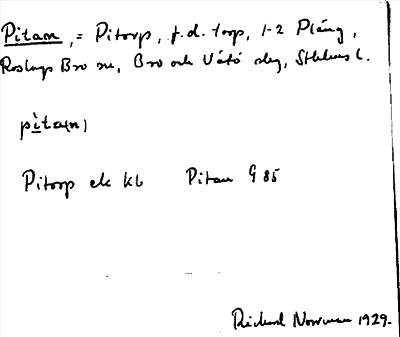 Pitam, = Pitorp, f.d. torp, 1-2 Pläng,
Roslags Bro sn, Bro och Vätö slg, Sthlms l.
pìta(n)
Pitorp ek kb Pitan G 85
Rickard Norrman 1929.